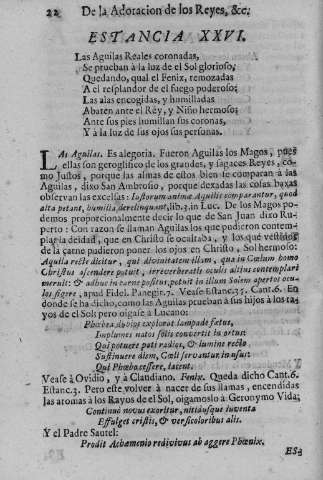 22 De la Adoracion de los Reyes, &c.
ESTANCIA XXVI.
Las Aguilas Reales coronadas,
Se prueban à la luz de el Sol glorioso;
Quedando, qual el Fenix, remozadas
A el resplandor de el fuego poderoso;
Las alas encogidas, y humilladas
Abaten ante el Rey, y Niño hermoso;
Ante sus pies humillan sus coronas,
Y à la luz de sus ojos sus personas.
LAs Aguilas. Es alegoria. Fueron Aguilas los Magos, pues
ellas son geroglifico de los grandes, y sagaces Reyes, co-
mo Justos, porque las almas de estos bien se comparan à las
Aguilas, dixo San Ambrosio, porque dexadas las cosas baxas
observan las excelsas: Iustorum animæ Aquilis comparantur, quod
alta petant, humilia derelinquant, lib. in Luc. De los Magos po-
demos proporcionalmente decir lo que de San Juan dixo Ru-
perto: Con razon se llaman Aguilas los que pudieron contem-
plar la deidad, que en Christo se ocultaba, y los que vestidos
de la carne pudieron poner los ojos en Christo, Sol hermoso:
Aquila recte dicitur, qui divinitatem illam, qua in Cœlum homo
Christus ascendere potuit, irreverberatis oculis altius contemplari
meruit: & adhuc in carne positus, potuit in illum Solem apertos ocu-
los figere, apud Fidel. Panegir. Vease Estanc. Cant. 6. En
donde se ha dicho, como las Aguilas prueban à sus hijos à los ra-
yos de el Sol; pero oigase à Lucano:
explorat lampade fœtus,
Implumes natos solis convertit in ortus:
Qui potuere pati radios, & lumine recto
Sustinuere diem, Cœli servantur in usus:
Qui Phœbo cessere, jacent.
Vease à Ovidio, y à Claudiano. Fenix. Queda dicho Cant. 6.
Estanc. 3. Pero este volver à nacer de sus llamas, encendidas
las aromas à los Rayos de el Sol, oigamoslo à Geronymo Vida;
Continuò novus exoritur, nitidusque juventa
Effulget cristis, & versicoloribus alis.
Y el Padre Sautel:
Prodit Achæmenio redivivus ab aggere Phœnix.
ES-